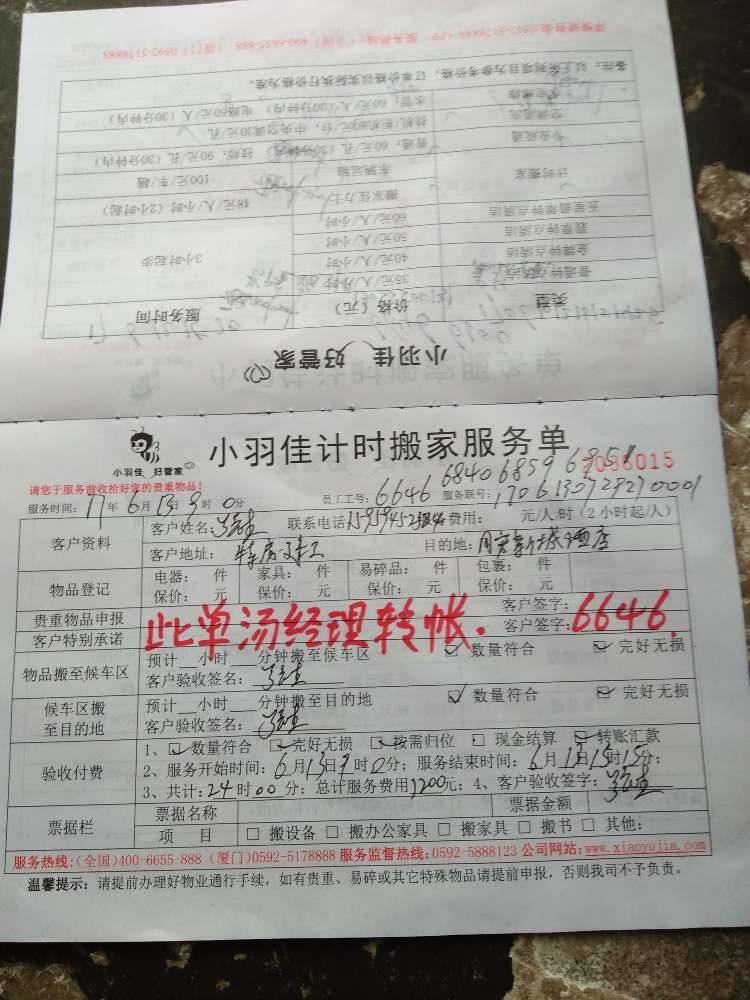 详情请咨询:0592-5178888 APP 服务热线:(全国) 400-6655-888 (厦门) 0592-5178888
备注:以上所列项目为参考价格,订单价格以实际执行价格为准。
小羽佳 好管家
类型 价格(元) 服务时间
普通钟点清洁 35元/人/小时 3小时起步
金牌钟点清洁 40元/人/小时
翡翠钟点清洁 50元/人/小时
五星翡翠钟点清洁 60元/人/小时
计时搬家 搬家佳力士 48元/人/小时(2小时起)
车辆运输 100元/车/趟
专业疏通 普通:60元/孔(30分钟内) 技师:90元/孔(30分钟)
空调清洗 挂机/柜机80元/台,中央空调30元/孔
水管:60元/人(30分钟内) 电路60元/人(30分钟内)
小羽佳 好管家
小羽佳计时搬家服务单
请您于服务前收拾好您的贵重物品!
2036015
服务时间:17年6月13日9时0分 员工工号:6646 6840 6859 6851 服务联号:1706130728270001
客户资料 客户姓名: 联系电话 服务费用: 元/人/时(2小时起/人)
客户地址:特房 目的地:
物品登记 电器: 件 家具: 件 易碎品: 件 包裹: 件
保价: 元 保价: 元 保价: 元 保价: 元
贵重物品申报 客户签字:
客户特别承诺 客户签字:
此单汤经理转帐. 6646.
物品搬至候车区 预计__小时___分钟搬至候车区 ☑ 数量符合 ☑ 完好无损
客户验收签名:
候车区搬至目的地 预计__小时___分钟搬至目的地 ☑ 数量符合 ☑ 完好无损
客户验收签名:
验收付费 1、☑ 数量符合 ☑ 完好无损 ☑ 按需归位 □ 现金结算 ☑ 转账汇款
2、服务开始时间:6月13日9时0分;服务结束时间:6月13日15时15分;
3、共计:24时00分;总计服务费用1200元;4、客户验收签字:
票据栏 票据名称 票据金额
项 目 □ 搬设备 □ 搬办公家具 □ 搬家具 □ 搬书 □ 其他:
服务热线:(全国)400-6655-888 (厦门)0592-5178888 服务监督热线:0592-5888123 公司网站:www.xiaoyujia.com
温馨提示: 请提前办理好物业通行手续,如有贵重、易碎或其它特殊物品请提前申报,否则我司不予负责。